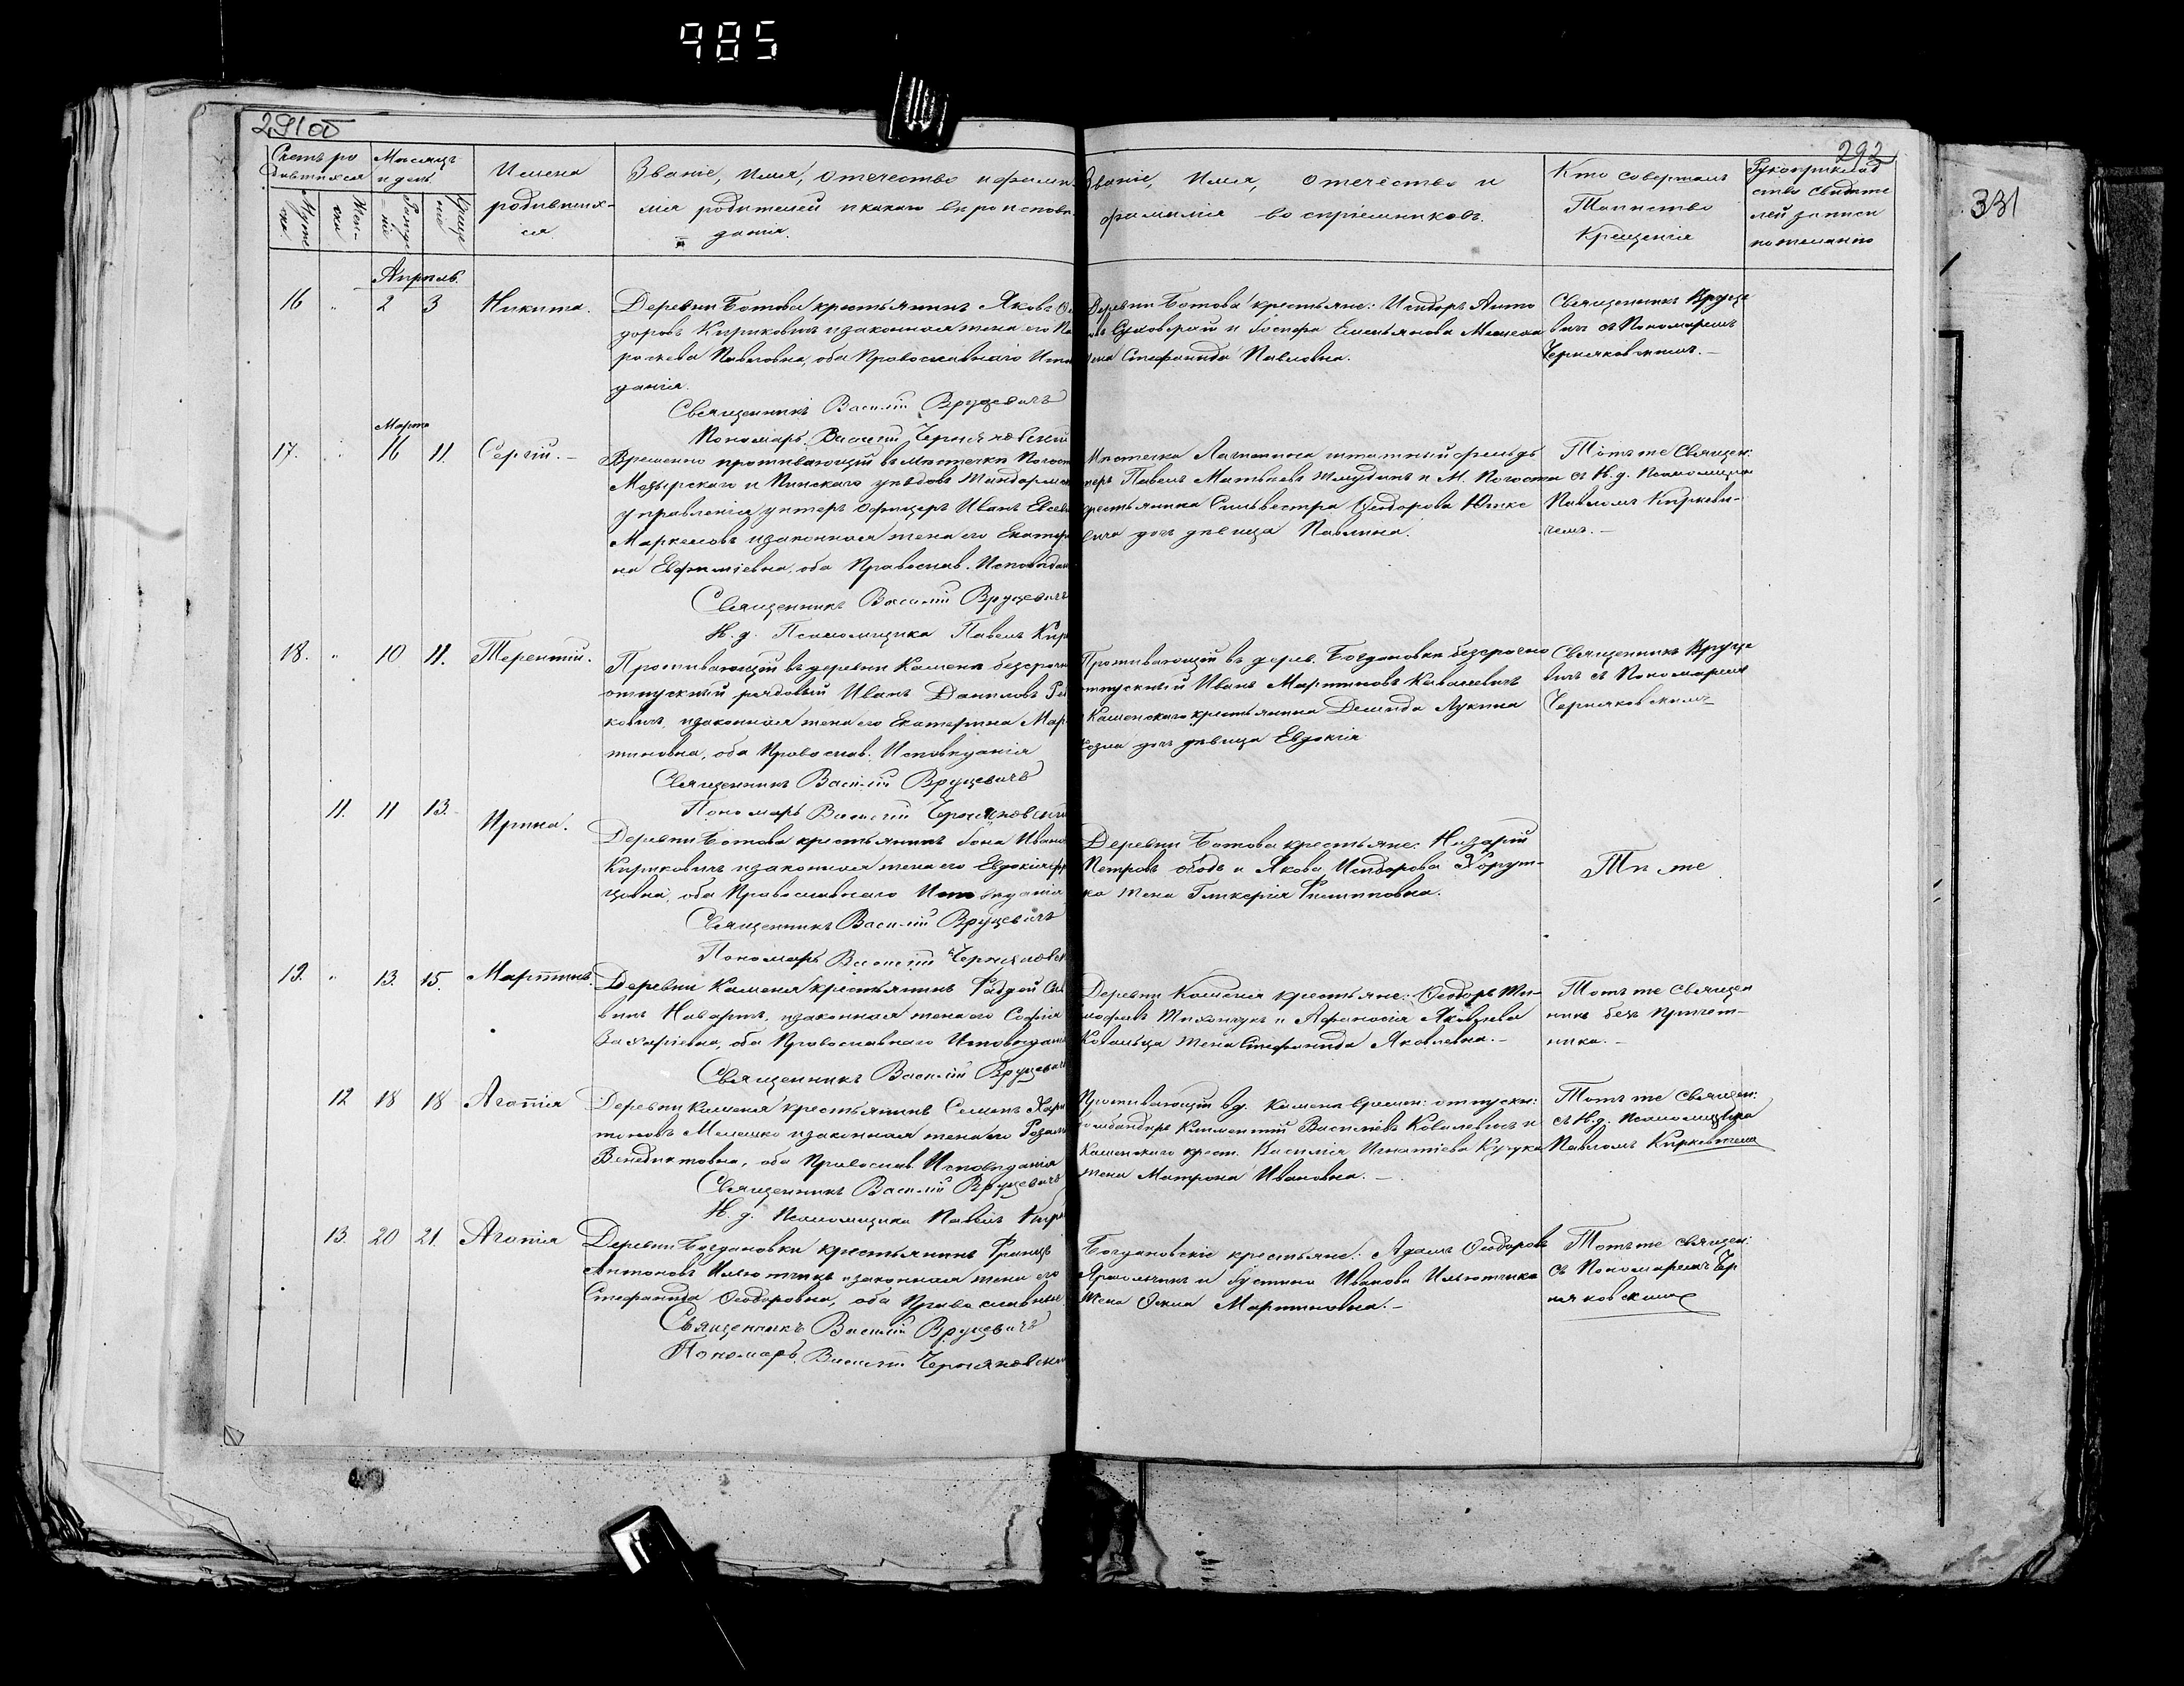 985
291об
292
331
Счетъ ро
дившихся
Мужеска
Женска
Месяцъ
и день
Рожде-
ніе
Креще
ніе
Имена
родивших-
ся.
Званіе, Имя, отечество и фами-
лія родителей и какого вѣроиспове-
данія.
Званіе, Имя, отечество и
фамилія воспріемниковъ.
Кто совершалъ
Таинство
Крещенія
Рукоприклад
ство свидѣте
лей записи
по желанію
Апрѣль
16 " 2 3 Никита.
Деревни Ботова крестьянинъ Яковъ
доровъ Кириковичъ и законная жена его
Павловна, оба Православнаго
данія.
Священникъ Василій Вруцевичъ
Пономарь Василій Черняковскій
Деревни Ботова крестьяне: Исидоръ Анто
и Емельянова
жена Стефанида Павловна.
Священникъ Вруце
вичъ съ Пономаремъ
Черняковскимъ.-
Марта
17. " 16 11. Сергій.-
Временно проживающій въ мѣстечкѣ
Мозырскаго и Пинскаго уѣздовъ Жандармск
управленія унтеръ офицеръ Иванъ
Маркеловъ и законная жена его Екатери
на Евфиміевна, оба Православ. Исповѣдан
Священникъ Василій Вруцевичъ
И. д. Псаломщика Павелъ Кир
Мѣстечка штатный фельд
шеръ Павелъ Матвѣевъ и М. Погоста
крестьянина Сильвестра Ѳеодорова
дочь дѣвица Павлина.
Тотъ же Священ:
съ И. д. Псаломщика
Павломъ Киркеви-
чемъ.-
18. " 10 11. Терентій.
Проживающій въ деревни Каменя безсрочно
отпускный рядовый Иванъ Даниловъ
ковичъ, и законная жена его Екатерина Мар
тиновна, оба Православ. Исповѣданія
Священникъ Василій Вруцевичъ
Пономарь Василій Черняковскій
Проживающій въ дерев. Богдановки безсрочно
отпускный Иванъ Мартиновъ Ковалевичъ
и Каменскаго крестьянина Демида Лукина
дочь дѣвица Евдокія
Священникъ Вруце
вичъ съ Пономаремъ
Черняковскимъ-
11. 11 13. Ирина.
Деревни Ботова крестьянинъ Ѳома
Кириковичъ и законная жена его Евдокія
оба Православнаго Исповѣданія
Священникъ Василій Вруцевичъ
Пономарь Василій Черняковск
Деревни Ботова крестьяне: Назарій
Петровъ и Якова Исидорова Хорут-
ка жена Гликерія Филипповна.
Тѣ же
19. " 13. 15. Мартинъ.
Деревни Каменя крестьянинъ Фаддей
винъ и законная жена его Софія
Захаріевна, оба Православнаго Исповѣдан
Священникъ Василій Вруцевич
Деревни Каменя крестьяне: Ѳеодоръ Ти-
мофеевъ и Афанасія Яковлева
Ковальца жена Стефанида Яковлевна.-
Тотъ же Священ
никъ безъ Причет-
ника.-
12 18 18 Агапія
Деревни Каменя крестьянинъ Семенъ Хари
тоновъ Мелешко и законная жена его
Венедиктовна, оба Православ. Исповѣданія
Священникъ Василій Вруцевичъ
И. д. Псаломщика Павелъ Кирк
Проживающій въ д. Каменѣ времен: отпускн:
бомбандиръ Климентій Васильевъ Ковалевичъ и
Каменскаго крест. Василія Игнатіева
жена Матрона Ивановна.-
Тотъ же Священ:
съ И. д. Псаломщика
Павломъ Киркевичемъ
13. 20 21. Агапія
Деревни Богдановки крестьянинъ Францъ
Антоновъ Ильютчикъ и законная жена его
Стефанида Ѳеодоровна, оба Православные
Священникъ Василій Вруцевичъ
Пономарь Василій Черняковскій
Богдановскіе крестьяне: Адамъ Ѳеодоровъ
Ярмольчикъ и Іустина Иванова Ильютчика
жена Мартиновна.-
Тотъ же Священ:
съ Пономаремъ Чер
няковскимъ